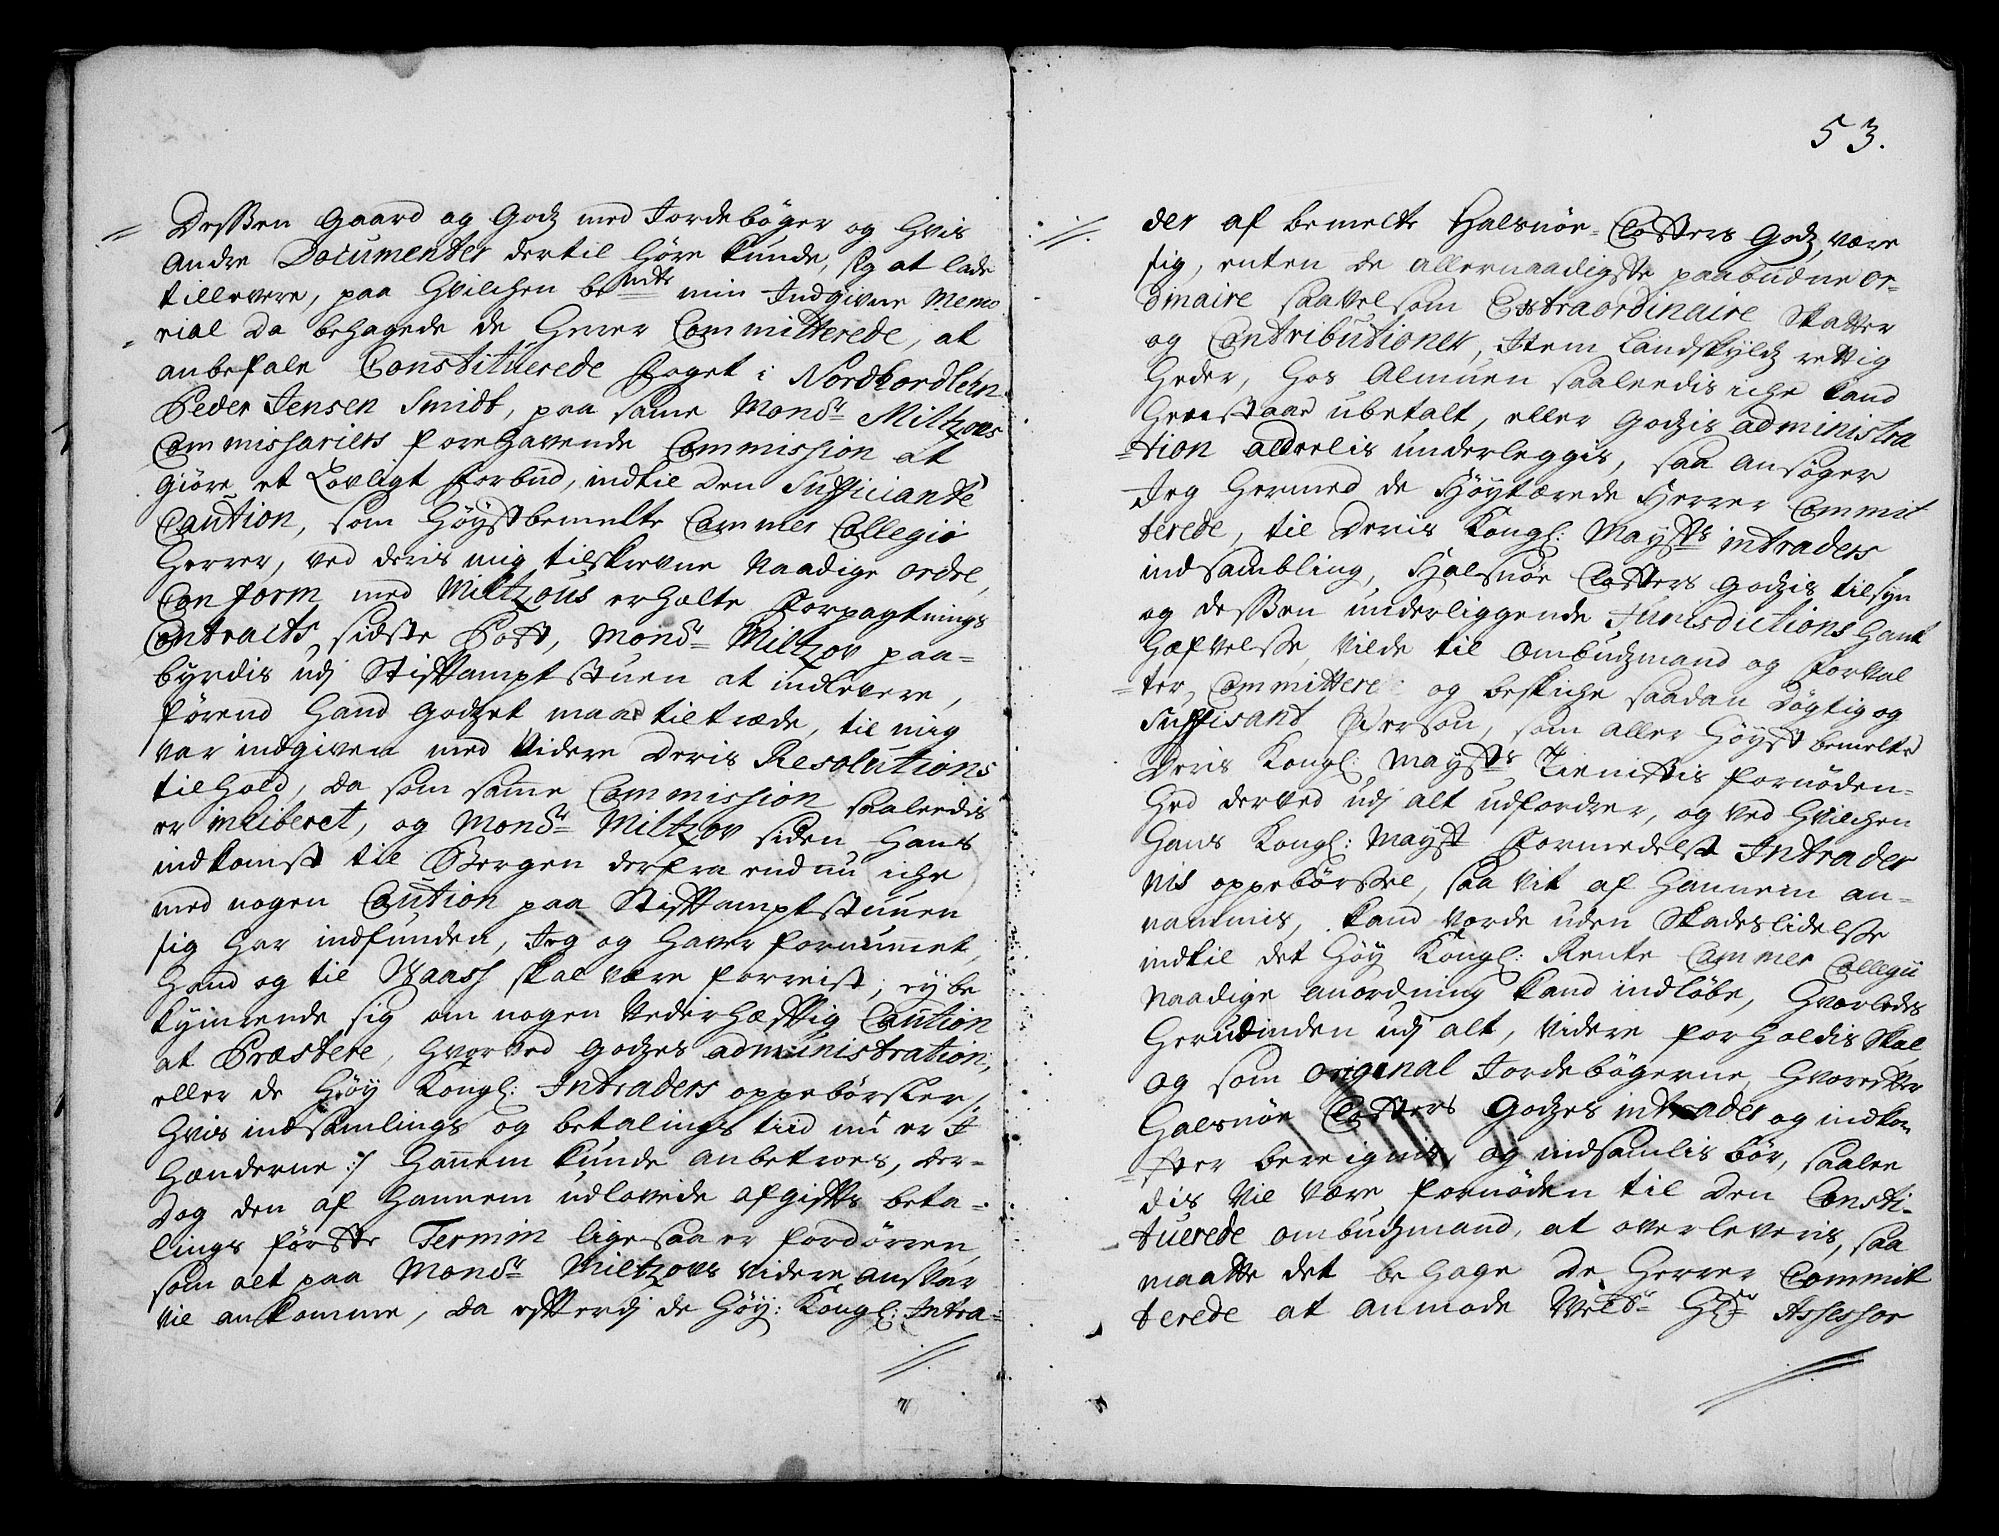 Dessen Gaard og Godz med Jordebøger og hvis
andre Documenter dertil høre kunde, sig at lade
tillevere, paa hvilchen be^mte min Indgivne Memo
rial da behagede de Herrer Committerede, at
anbefale Constituerede Foget i Nordhordlehn
Peder Jensen Smidt, paa same Monsr Miltzous
Commissariers forehavende Commission at
giøre et Lovligt forbud, indtil den Sufficiante
Caution, som Høystbemelte Cammer Collegii
Herrer, ved deris mig tilskrevne Naadige ordre,
Conform med Miltzous erholte Forpagtnings
Contracts sidste Post, Monsr Miltzov paa-
byrdis udj Stiftamptstuen at indlevere,
førend hand Godzet maa tiltræde, til mig
var indgiven med videre deris Resolutions
tilhold, da som samme Commission saaledis
er inhiberet, og Monsr Miltzov siden hans
indkomst til Bergen derfra endnu iche
med nogen Caution paa Stiftamptstuen
sig har indfunden, Jeg og haver fornummet,
hand og til Waass skal være forreist, ey be
kymrende sig om nogen Vederhæftig Caution
at Præstere, hvorved Godzes administration,
eller de Høy Kongl: Intraders oppebørsler,
hvis indsamlings og betalings tiid nu er J
hænderne :/ hannem kunde anbetroes, der-
dog den af hannem udlovede afgifts beta-
lings første Termin ligesaa er fordøren,
som alt paa Monsr Miltzous videre ansvar
vil ankomme, da efterdj de Høy: Kongl: Intra-
53.
der af bemelte Halsnøe Closters Godz, være
sig, enten de allernaadigste paabudne or-
dinaire saavelsom Extraordinaire Skatter
og Contributioner, Item Landskyldz rettig
heder, hos Almuen saaledis iche kand
henstaae ubetalt, eller Godzis administra
tion alderlis underleggis, saa ansøger
Jeg hermed de Høytærede Herrer Commit
terede, til Deris Kongl: Maysts intraders
indsambling, Halsnøe Closters Godzis tilsyn
og dessen underliggende Jurisdictions hant
hæfvelse, vilde til ombudzmand og forval
ter, Committere og beskiche saadan døgtig og
Suffisant Person, som aller høyst bemelte
Deris Kongl: Maysts Tienistis fornøden-
hed derved udj alt udfordrer, og ved hvilchen
Hans Kongl: Mayst formedelst Intrader
nis oppebørsel, saa vit af hannem an-
nammis, kand vorde uden Skadeslidelse
indtil det Høy Kongl: Rente Cammer Collegii
naadige anordning kand indløbe, hvorledes
herudinden udj alt, videre forholdis Skal,
og som original Jordebøgerne, hvorefter
Halsnøe Closters Godzes intrader og indkom
ster beregnis, og indsamlis bør, saalee
dis vil være fornøden til den Consti-
tuerede ombudzmand, at overleveris, saa
maatte det behage De Herrer Commit
terede at anmode Welbr Hr Assessor